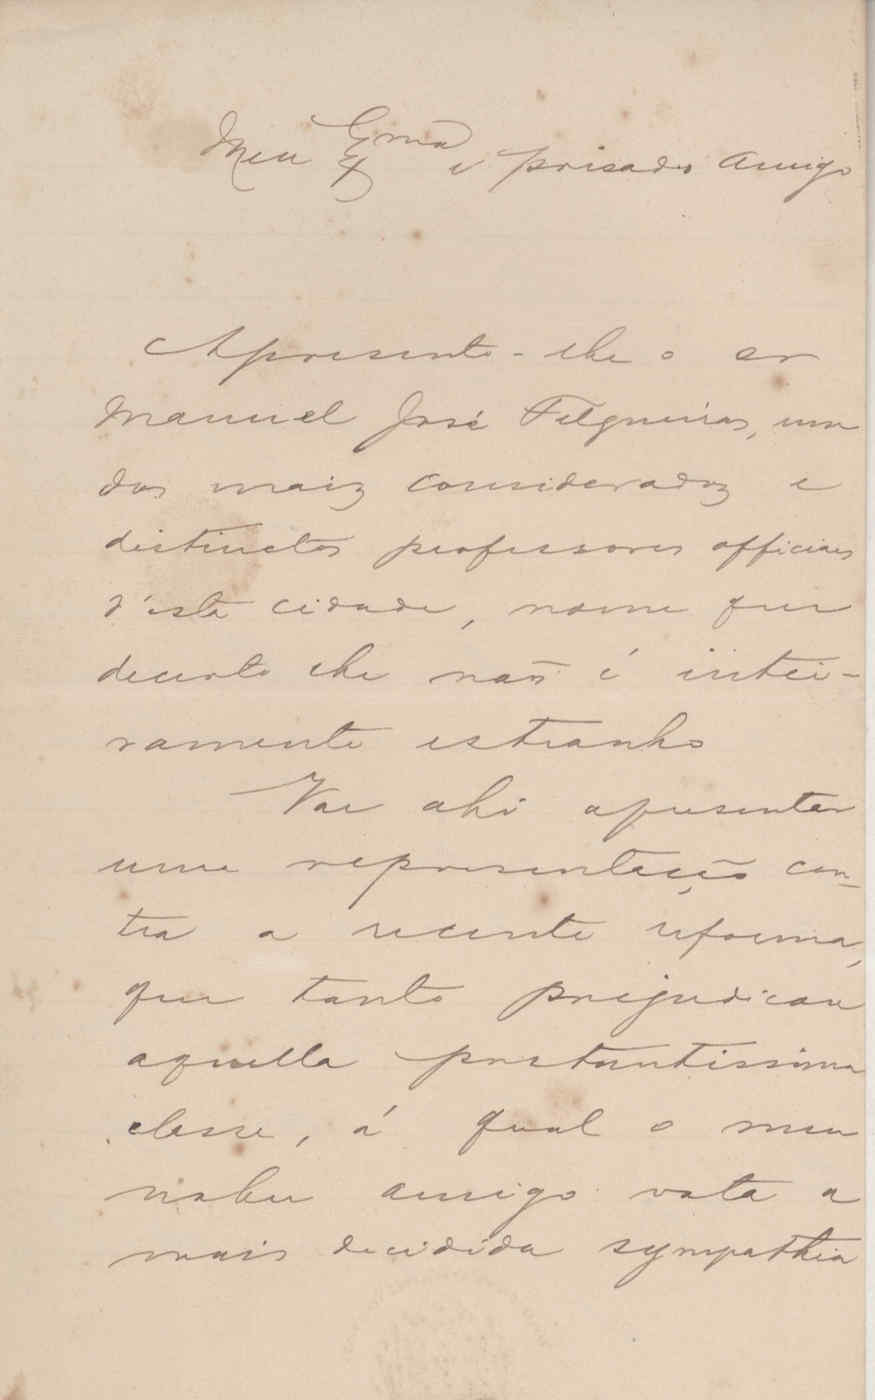 Meu Exmo e presado amigo
Apresento-lhe o sr
Manuel José Felgueiras, um
dos mais considerados e
distinctos professores officiaes
d'esta cidade, nome que
decerto lhe não é intei-
ramente estranho
Vae ahi apresentar
uma representação con-
tra a recente reforma,
que tanto prejudicou
aquella prestantissima
classe, á qual o meu
nobre amigo vota a
mais decidida sympathia